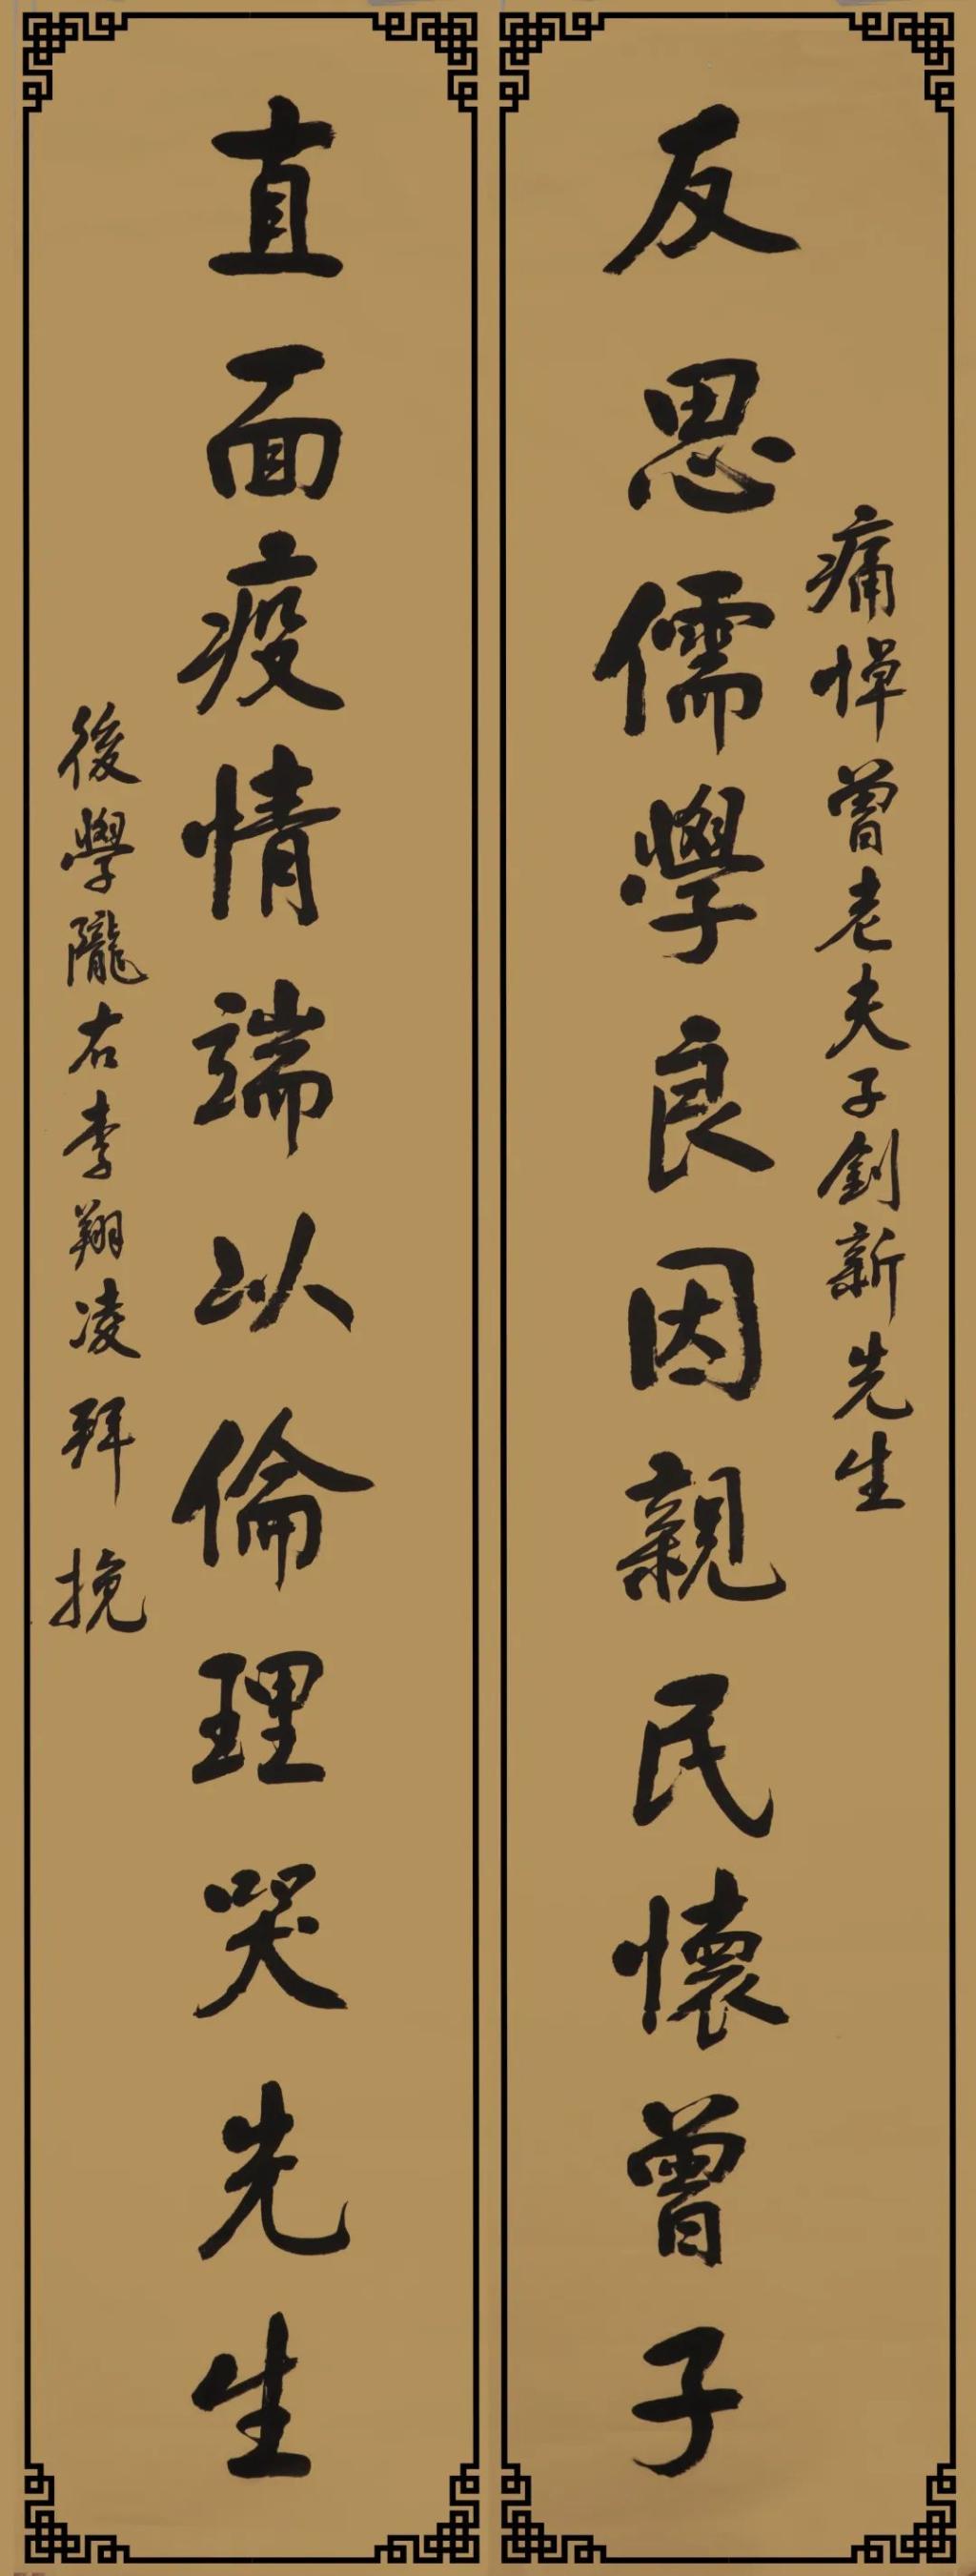 痛悼曾老夫子釗新先生
反思儒學良因親民懷曾子
直面疫情端以倫理哭先生
後學隴右李翔凌拜挽